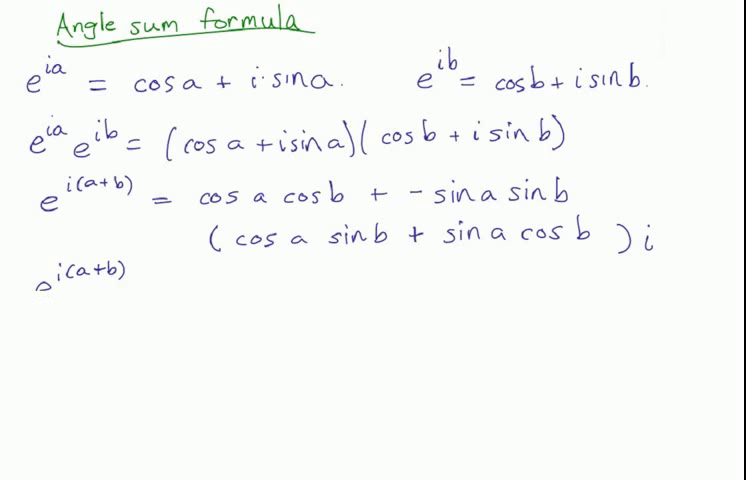 Angle sum formula
e^{ia} = cos a + i·sin a. e^{ib} = cos b + i sin b.
e^{ia} e^{ib} = (cos a + i sin a)(cos b + i sin b)
e^{i(a+b)} = cos a cos b + - sin a sin b
(cos a sin b + sin a cos b) i
e^{i(a+b)}